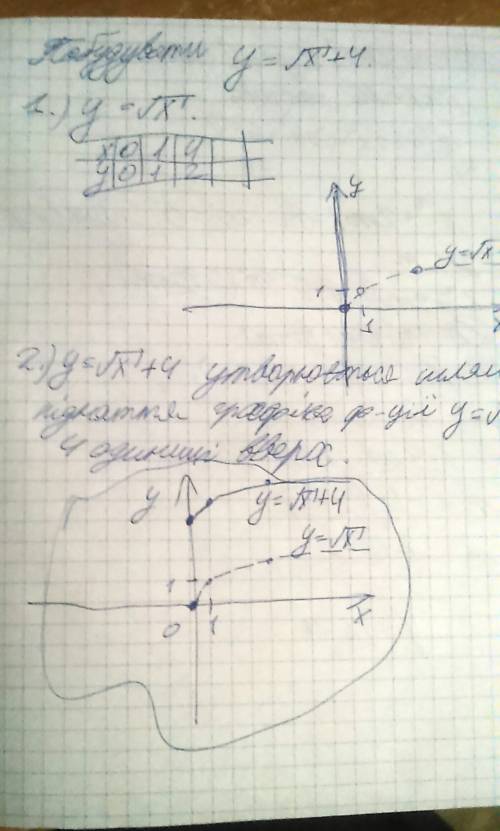 Побудувати y = √x + 4.
1.) y = √x.
x 0 1 4
y 0 1 2
y
y = √x
1
1
x
2.) y = √x + 4 утворюється шлях
підняття графіка ф-ції y = √
4 одиниці вверх.
y
y = √x + 4
y = √x
1
0 1 x